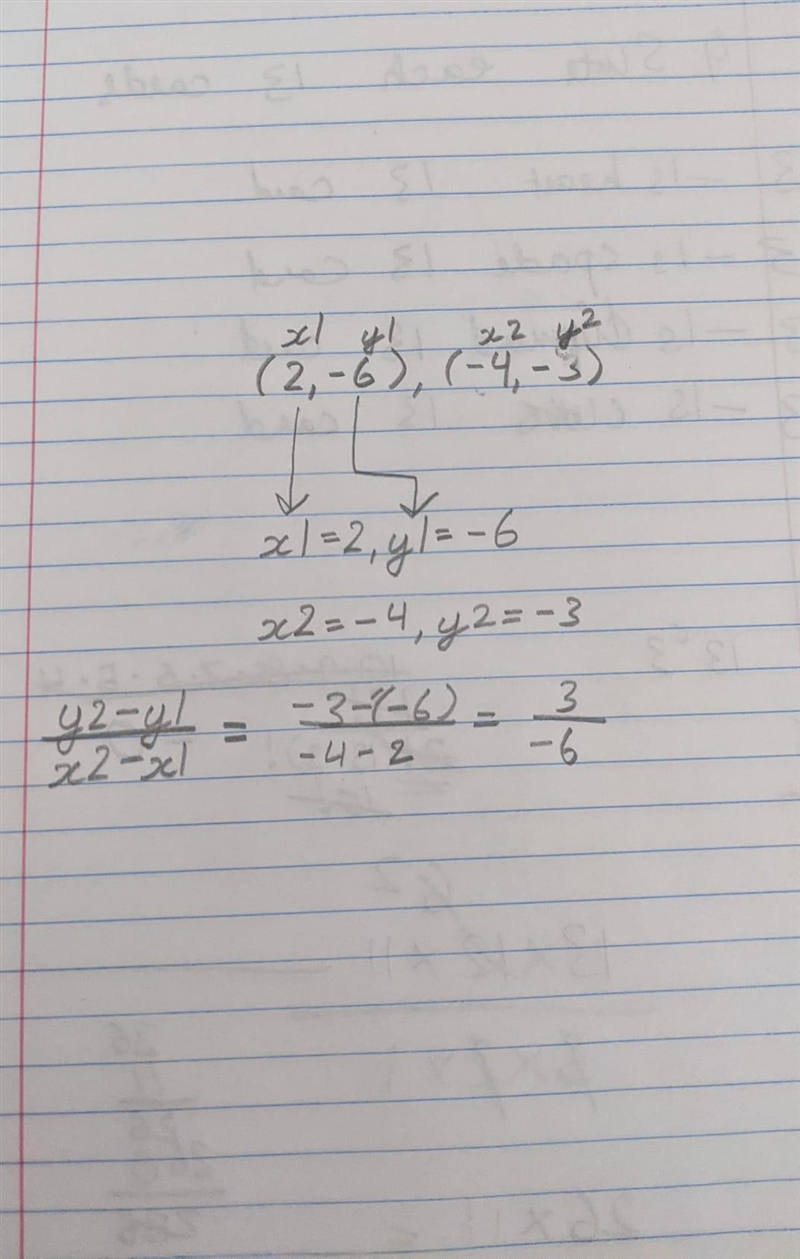 x1 y1 x2 y2
(2, -6), (-4, -3)
x1 = 2, y1 = -6
x2 = -4, y2 = -3
y2 - y1 / x2 - x1 = -3 - (-6) / -4 - 2 = 3 / -6